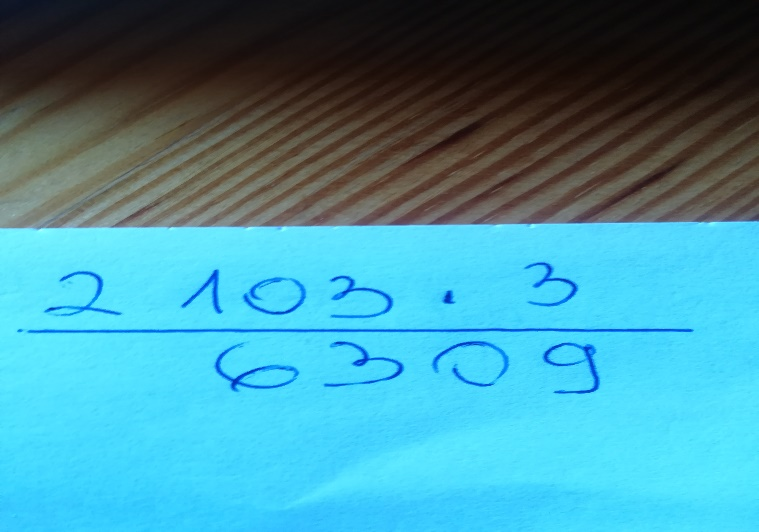 2 103 . 3
6309